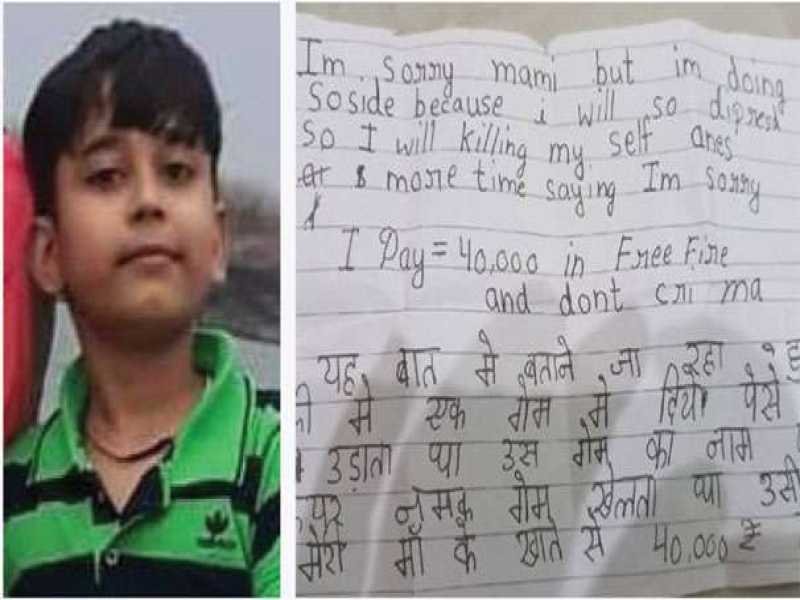 Im sorry mami but im doing
Soside because i will so dipresd
So I will killing my self anes
more time saying Im sorry
I Pay = 40,000 in Free Fire
and dont cri ma
यह बात मे बताने जा रहा हु
मे एक गेम मे दियो पैसे
उड़ाता था उस गेम का नाम
नमक गेम खेलता था उसी
मेरी माँ के खाते से 40,000 रु